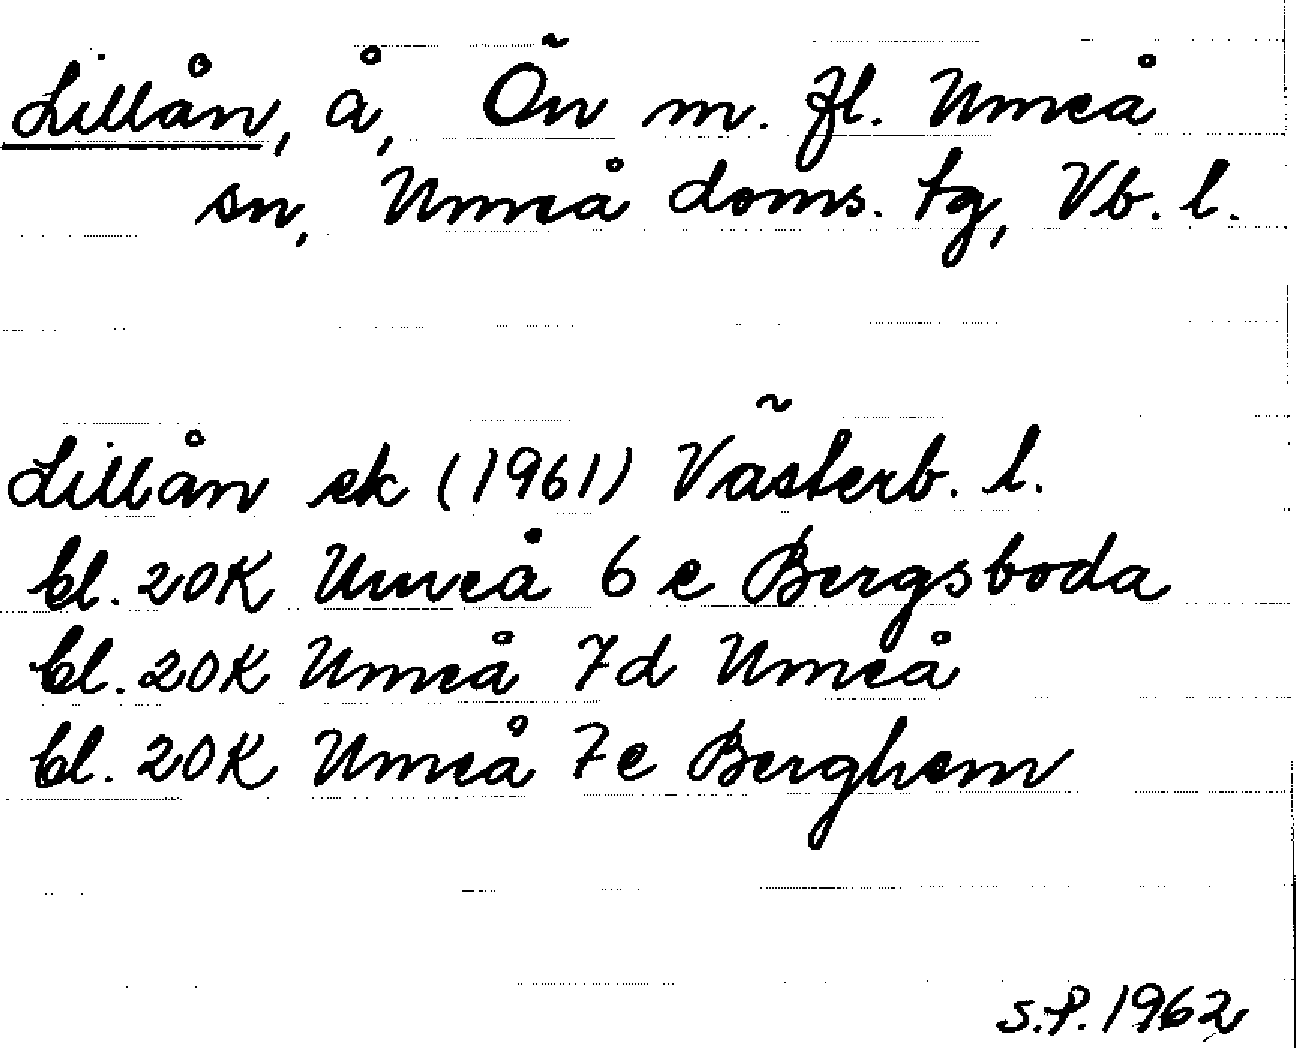 Lillån, å, Ön m. fl. Umeå
sn, Umeå doms. tg, Vb. l.
Lillån ek (1961) Västerb. l.
bl. 20K Umeå 6e Bergsboda
bl. 20K Umeå 7d Umeå
bl. 20K Umeå 7e Berghem
S.P. 1962